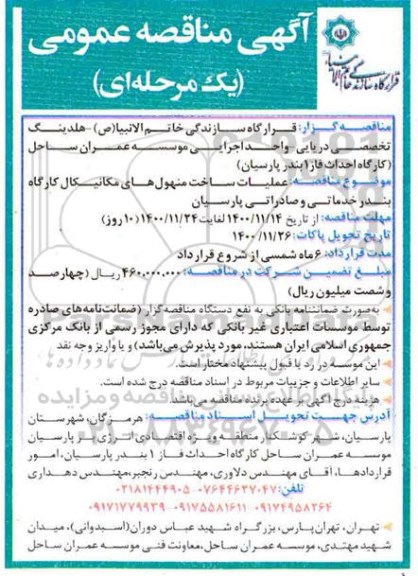 آگهی مناقصه عمومی
(یک مرحله‌ای)
مناقصه گزار: قرارگاه سازندگی خاتم الانبیا(ص) -هلدینگ
تخصصی دریایی-واحد اجرایی موسسه عمران ساحل
(کارگاه احداث فاز۱ بندر پارسیان)
موضوع مناقصه: عملیات ساخت منهول های مکانیکال کارگاه
بندر خدماتی و صادراتی پارسیان
مهلت مناقصه: از تاریخ ۱۴۰۰/۱۱/۱۴ لغایت ۱۴۰۰/۱۱/۲۴ (۱۰ روز)
تاریخ تحویل پاکات: ۱۴۰۰/۱۱/۲۶
مدت قرارداد: ۶ ماه شمسی از شروع قرارداد
مبلغ تضمین شرکت در مناقصه: ۴۶۰,۰۰۰,۰۰۰ ریال (چهارصد
و شصت میلیون ریال)
به‌صورت ضمانتنامه بانکی به نفع دستگاه مناقصه‌گزار (ضمانت‌نامه‌های صادره
توسط موسسات اعتباری غیر بانکی که دارای مجوز رسمی از بانک مرکزی
جمهوری اسلامی ایران هستند، مورد پذیرش می‌باشد) و یا واریز وجه نقد
این موسسه در رد یا قبول پیشنهاد مختار است.
سایر اطلاعات و جزییات مربوط در اسناد مناقصه درج شده است.
هزینه درج آگهی بر عهده برنده مناقصه می‌باشد.
آدرس جهت تحویل اسناد مناقصه: هرمزگان، شهرستان
پارسیان، شهر کوشکنار منطقه ویژه اقتصادی انرژی بر پارسیان
موسسه عمران ساحل کارگاه احداث فاز ۱ بندر پارسیان، امور
قراردادها، آقای مهندس دلاوری، مهندس رنجبر،مهندس دهداری
تلفن: ۰۷۶۴۴۶۲۷۰۴۷-۰۲۱۸۱۴۴۴۹۰۵
۰۹۱۷۴۹۵۸۲۶۴ ۰۹۱۷۵۵۸۱۶۱۱ ۰۹۱۷۱۷۷۹۹۳۹
تهران، تهران پارس، بزرگراه شهید عباس دوران(اسبدوانی)، میدان
شهید مهتدی، موسسه عمران ساحل،معاونت فنی موسسه عمران ساحل